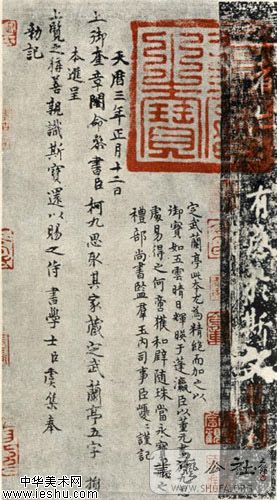 定武蘭亭此本尤為精絕而加之以
御寶如五雲晴日輝映於蓬瀛臣以董元畫
處易得之何啻獲和璧隨珠當永寶之
禮部尚書監群玉內司事臣巙巙謹記
天曆三年正月十二日
上御奎章閣命參書臣柯九思取其家藏定武蘭亭五字損
本進呈
上覽之稱善親識斯寶還以賜之侍書學士臣虞集奉
勅記
中华美术网
www.ieshu.com
公社